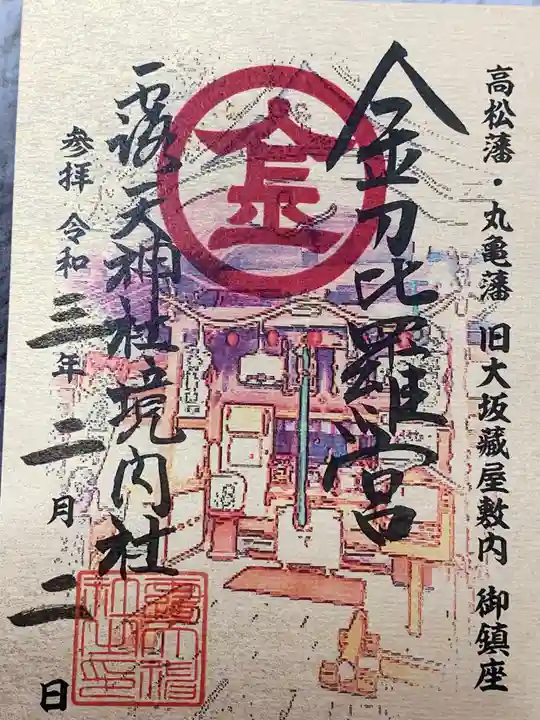 高松藩・丸亀藩 旧大坂蔵屋敷内 御鎮座
金刀比羅宮
金
露天神社境内社
参拝 令和三年二月二日